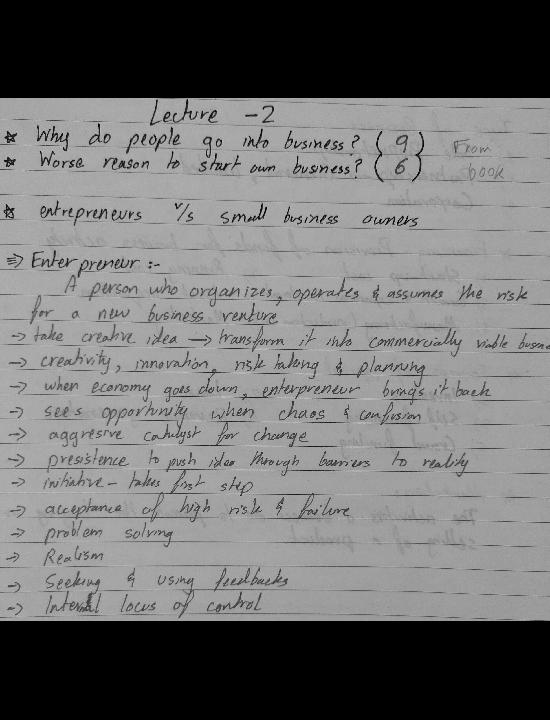 Lecture - 2
* Why do people go into business? (9) From
* Worse reason to start own business? (6) book
* entrepreneurs v/s small business owners
=> Enterpreneur :-
A person who organizes, operates & assumes the risk
for a new business venture
-> take creative idea -> transform it into commercially viable busine
-> creativity, innovation, risk taking & planning
-> when economy goes down, enterpreneur brings it back
-> sees opportunity when chaos & confusion
-> aggresive catalyst for change
-> presistence to push idea through barriers to reality
-> initiative - takes first step
-> acceptance of high risk & failure
-> problem solving
-> Realism
-> Seeking & using feedbacks
-> Internal locus of control